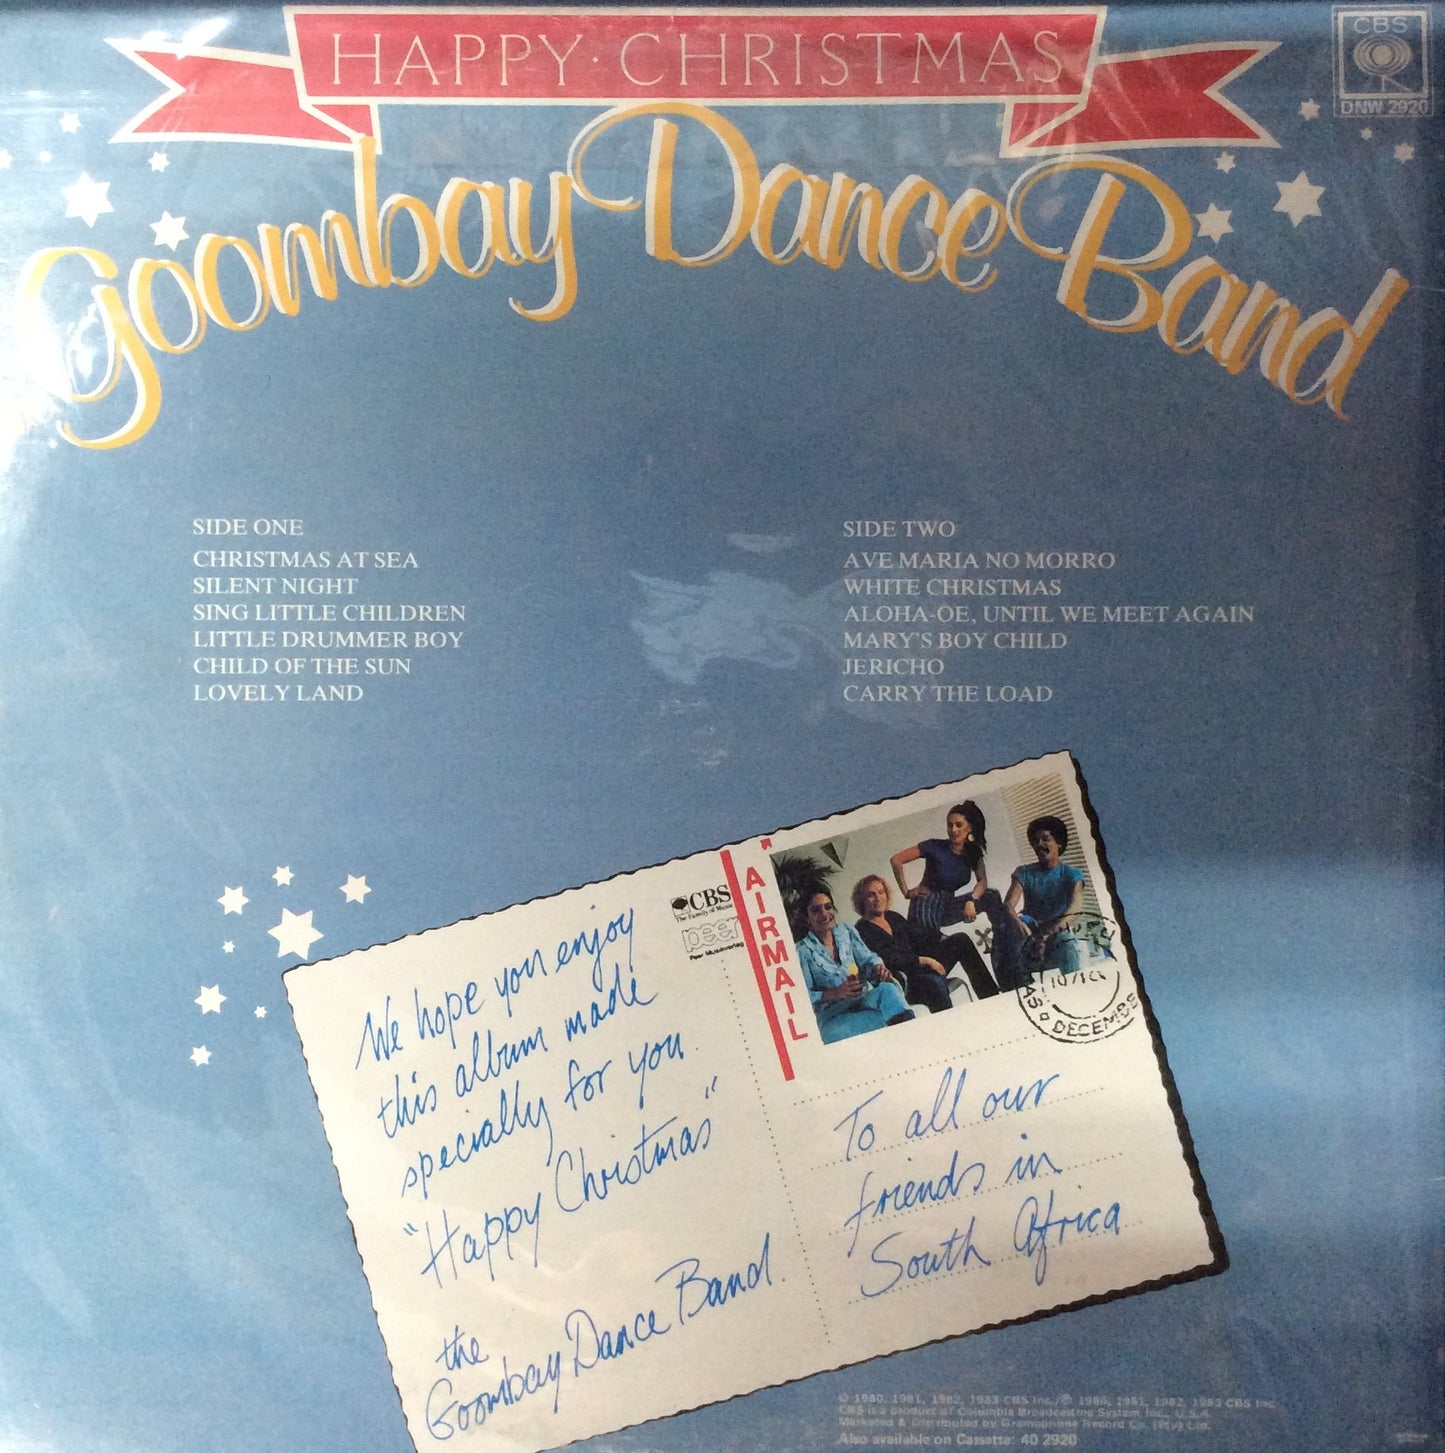 HAPPY · CHRISTMAS
CBS
DNW 2920
Goombay Dance Band
SIDE ONE
CHRISTMAS AT SEA
SILENT NIGHT
SING LITTLE CHILDREN
LITTLE DRUMMER BOY
CHILD OF THE SUN
LOVELY LAND
SIDE TWO
AVE MARIA NO MORRO
WHITE CHRISTMAS
ALOHA-OE, UNTIL WE MEET AGAIN
MARY'S BOY CHILD
JERICHO
CARRY THE LOAD
We hope you enjoy
this album made
specially for you
"Happy Christmas"
the
Goombay Dance Band
CBS
The Family of Music
peer
Peer Musikverlag
AIRMAIL
DECEMBE
To all our
friends in
South Africa
© 1980, 1981, 1982, 1983 CBS Inc./℗ 1980, 1981, 1982, 1983 CBS Inc.
CBS is a product of Columbia Broadcasting System Inc., U.S.A.
Marketed & Distributed by Gramophone Record Co. (Pty) Ltd.
Also available on Cassette: 40 2920